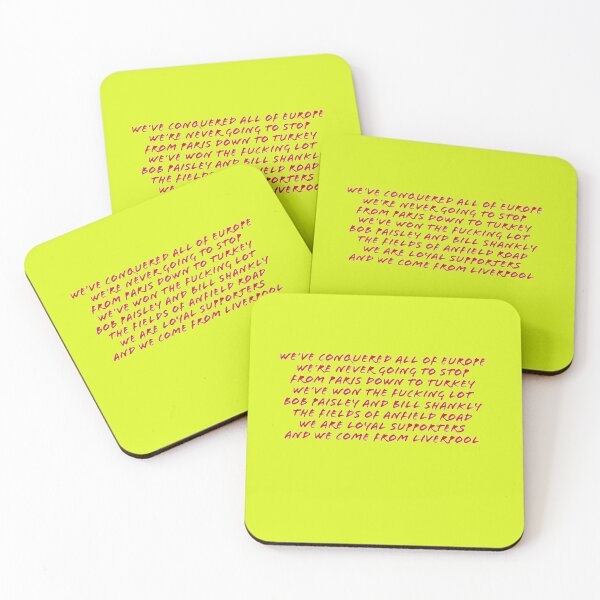 WE'VE CONQUERED ALL OF EUROPE
WE'RE NEVER GOING TO STOP
FROM PARIS DOWN TO TURKEY
WE'VE WON THE FUCKING LOT
BOB PAISLEY AND BILL SHANKLY
THE FIELDS OF ANFIELD ROAD
WE SUPPORTERS
LIVERPOOL
WE'VE CONQUERED ALL OF EUROPE
WE'RE NEVER GOING TO STOP
FROM PARIS DOWN TO TURKEY
WE'VE WON THE FUCKING LOT
BOB PAISLEY AND BILL SHANKLY
THE FIELDS OF ANFIELD ROAD
WE ARE LOYAL SUPPORTERS
AND WE COME FROM LIVERPOOL
WE'VE CONQUERED ALL OF EUROPE
WE'RE NEVER GOING TO STOP
FROM PARIS DOWN TO TURKEY
WE'VE WON THE FUCKING LOT
BOB PAISLEY AND BILL SHANKLY
THE FIELDS OF ANFIELD ROAD
WE ARE LOYAL SUPPORTERS
AND WE COME FROM LIVERPOOL
WE'VE CONQUERED ALL OF EUROPE
WE'RE NEVER GOING TO STOP
FROM PARIS DOWN TO TURKEY
WE'VE WON THE FUCKING LOT
BOB PAISLEY AND BILL SHANKLY
THE FIELDS OF ANFIELD ROAD
WE ARE LOYAL SUPPORTERS
AND WE COME FROM LIVERPOOL